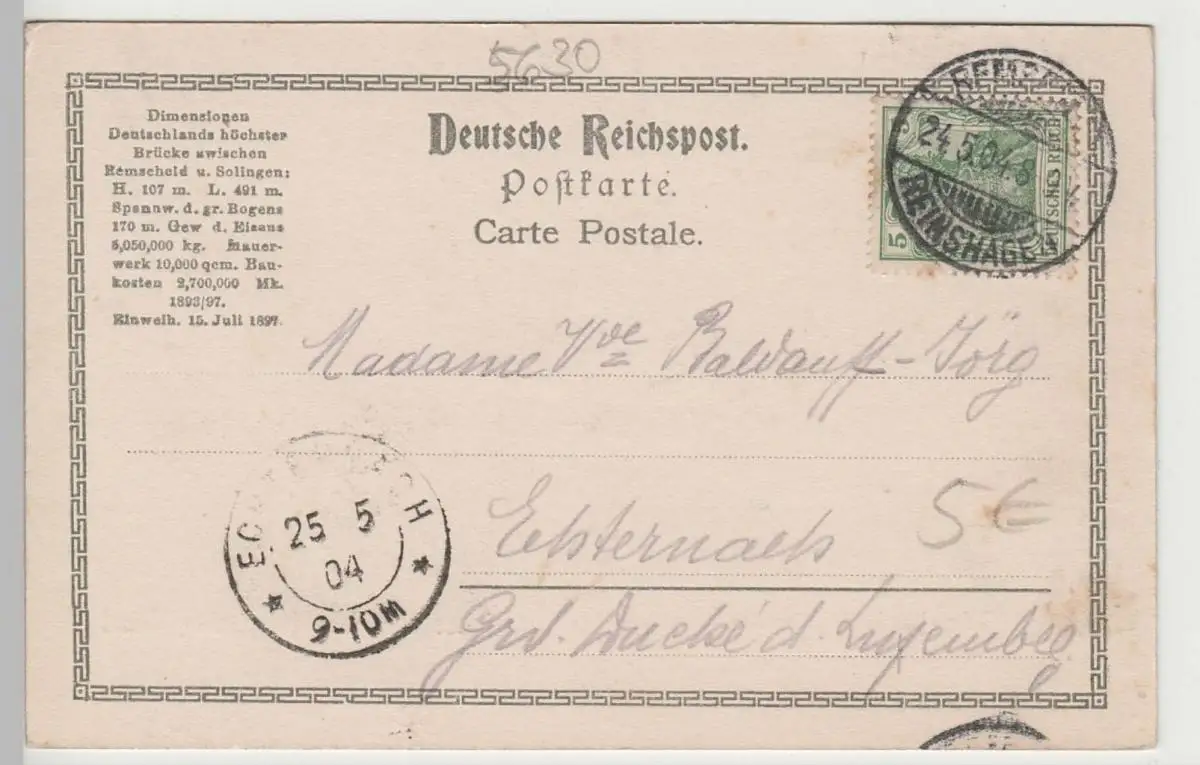 5630
Dimensionen
Deutschlands höchster
Brücke zwischen
Remscheid u. Solingen:
H. 107 m. L. 491 m.
Spannw. d. gr. Bogens
170 m. Gew d. Eisens
5,050,000 kg. Mauer-
werk 10,000 qcm. Bau-
kosten 2,700,000 Mk.
1893/97.
Einweih. 15. Juli 1897.
Deutsche Reichspost.
Postkarte.
Carte Postale.
24.5.04.8
REINSHAGEN
5
DEUTSCHES REICH
Madame Vve Baldauff-Jörg
Echternach
5 €
Grd. Duché d Luxembg
25 5
04
9-10M